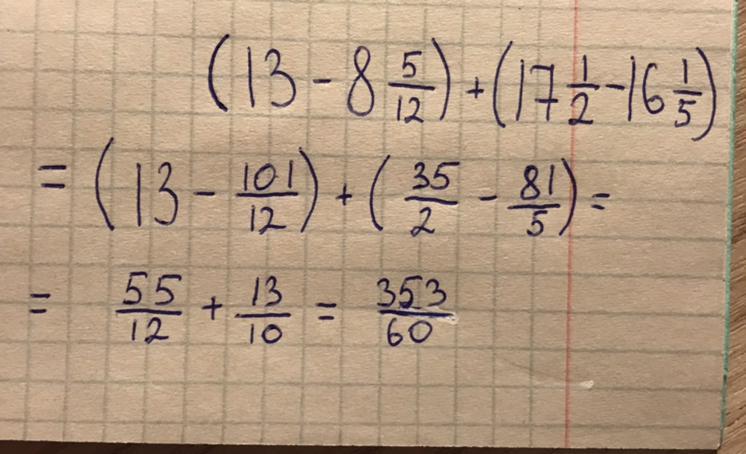 (13 - 8 5/12) + (17 1/2 - 16 1/5)
= (13 - 101/12) + (35/2 - 81/5) =
= 55/12 + 13/10 = 353/60